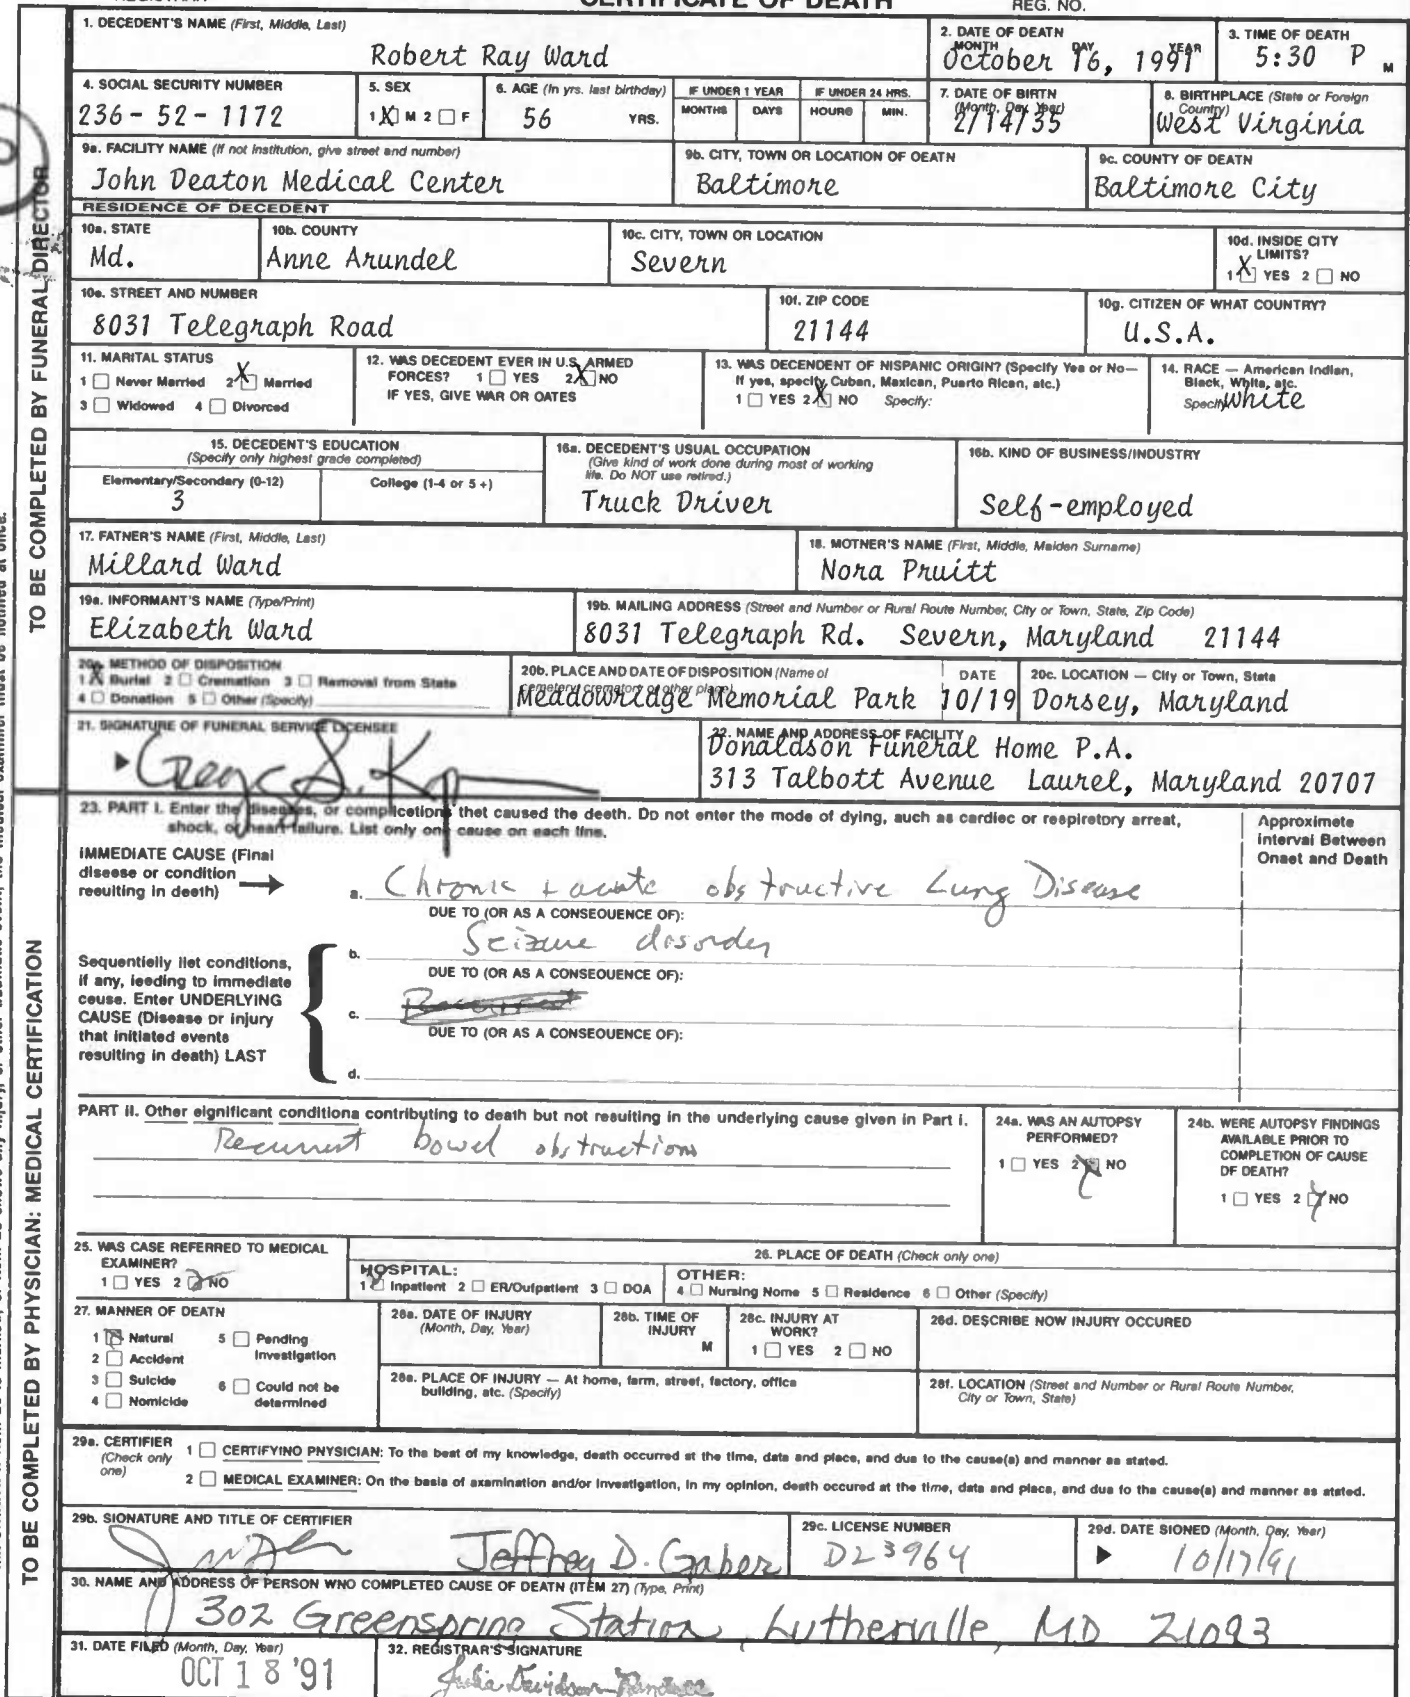 CERTIFICATE OF DEATH
REG. NO.
1. DECEDENT'S NAME (First, Middle, Last)
Robert Ray Ward
2. DATE OF DEATH
MONTH DAY YEAR
October 16, 1991
3. TIME OF DEATH
5:30 P M
4. SOCIAL SECURITY NUMBER
236-52-1172
5. SEX
1 X M 2 ☐ F
6. AGE (In yrs. last birthday)
56 YRS.
IF UNDER 1 YEAR
MONTHS DAYS
IF UNDER 24 HRS.
HOURS MIN.
7. DATE OF BIRTH
(Month, Day, Year)
2/14/35
8. BIRTHPLACE (State or Foreign
Country)
West Virginia
9a. FACILITY NAME (If not Institution, give street and number)
John Deaton Medical Center
9b. CITY, TOWN OR LOCATION OF DEATH
Baltimore
9c. COUNTY OF DEATH
Baltimore City
RESIDENCE OF DECEDENT
10a. STATE
Md.
10b. COUNTY
Anne Arundel
10c. CITY, TOWN OR LOCATION
Severn
10d. INSIDE CITY
LIMITS?
1 X YES 2 ☐ NO
10e. STREET AND NUMBER
8031 Telegraph Road
10f. ZIP CODE
21144
10g. CITIZEN OF WHAT COUNTRY?
U.S.A.
11. MARITAL STATUS
1 ☐ Never Married 2 X Married
3 ☐ Widowed 4 ☐ Divorced
12. WAS DECEDENT EVER IN U.S. ARMED
FORCES? 1 ☐ YES 2 X NO
IF YES, GIVE WAR OR DATES
13. WAS DECENDENT OF HISPANIC ORIGIN? (Specify Yes or No—
If yes, specify Cuban, Mexican, Puerto Rican, etc.)
1 ☐ YES 2 X NO Specify:
14. RACE — American Indian,
Black, White, etc.
Specify white
15. DECEDENT'S EDUCATION
(Specify only highest grade completed)
Elementary/Secondary (0-12) College (1-4 or 5+)
3
16a. DECEDENT'S USUAL OCCUPATION
(Give kind of work done during most of working
life. Do NOT use retired.)
Truck Driver
16b. KIND OF BUSINESS/INDUSTRY
Self-employed
17. FATHER'S NAME (First, Middle, Last)
Millard Ward
18. MOTHER'S NAME (First, Middle, Maiden Surname)
Nora Pruitt
19a. INFORMANT'S NAME (Type/Print)
Elizabeth Ward
19b. MAILING ADDRESS (Street and Number or Rural Route Number, City or Town, State, Zip Code)
8031 Telegraph Rd. Severn, Maryland 21144
20a. METHOD OF DISPOSITION
1 X Burial 2 ☐ Cremation 3 ☐ Removal from State
4 ☐ Donation 5 ☐ Other (Specify)
20b. PLACE AND DATE OF DISPOSITION (Name of
cemetery, crematory or other place)
Meadowridge Memorial Park
DATE
10/19
20c. LOCATION — City or Town, State
Dorsey, Maryland
21. SIGNATURE OF FUNERAL SERVICE LICENSEE
22. NAME AND ADDRESS OF FACILITY
Donaldson Funeral Home P.A.
313 Talbott Avenue Laurel, Maryland 20707
TO BE COMPLETED BY FUNERAL DIRECTOR
23. PART I. Enter the diseases, or complications that caused the death. Do not enter the mode of dying, such as cardiac or respiratory arrest,
shock, or heart failure. List only one cause on each line.
Approximate
Interval Between
Onset and Death
IMMEDIATE CAUSE (Final
disease or condition
resulting in death)
a. Chronic + acute obstructive Lung Disease
DUE TO (OR AS A CONSEQUENCE OF):
b. Seizure disorder
DUE TO (OR AS A CONSEQUENCE OF):
Sequentially list conditions,
if any, leading to immediate
cause. Enter UNDERLYING
CAUSE (Disease or injury
that initiated events
resulting in death) LAST
c.
DUE TO (OR AS A CONSEQUENCE OF):
d.
PART II. Other significant conditions contributing to death but not resulting in the underlying cause given in Part I.
Recurrent bowel obstructions
24a. WAS AN AUTOPSY
PERFORMED?
1 ☐ YES 2 X NO
24b. WERE AUTOPSY FINDINGS
AVAILABLE PRIOR TO
COMPLETION OF CAUSE
OF DEATH?
1 ☐ YES 2 X NO
25. WAS CASE REFERRED TO MEDICAL
EXAMINER?
1 ☐ YES 2 X NO
26. PLACE OF DEATH (Check only one)
HOSPITAL:
1 X Inpatient 2 ☐ ER/Outpatient 3 ☐ DOA
OTHER:
4 ☐ Nursing Home 5 ☐ Residence 6 ☐ Other (Specify)
27. MANNER OF DEATH
1 X Natural 5 ☐ Pending Investigation
2 ☐ Accident
3 ☐ Suicide 6 ☐ Could not be determined
4 ☐ Homicide
28a. DATE OF INJURY
(Month, Day, Year)
28b. TIME OF
INJURY
M
28c. INJURY AT
WORK?
1 ☐ YES 2 ☐ NO
28d. DESCRIBE HOW INJURY OCCURED
28e. PLACE OF INJURY — At home, farm, street, factory, office
building, etc. (Specify)
28f. LOCATION (Street and Number or Rural Route Number,
City or Town, State)
29a. CERTIFIER
(Check only
one)
1 ☐ CERTIFYING PHYSICIAN: To the best of my knowledge, death occurred at the time, date and place, and due to the cause(s) and manner as stated.
2 ☐ MEDICAL EXAMINER: On the basis of examination and/or investigation, in my opinion, death occured at the time, date and place, and due to the cause(s) and manner as stated.
29b. SIGNATURE AND TITLE OF CERTIFIER
Jeffrey D. Gaber
29c. LICENSE NUMBER
D23964
29d. DATE SIGNED (Month, Day, Year)
10/17/91
30. NAME AND ADDRESS OF PERSON WHO COMPLETED CAUSE OF DEATH (ITEM 27) (Type, Print)
302 Greenspring Station, Lutherville, MD 21093
31. DATE FILED (Month, Day, Year)
OCT 18 '91
32. REGISTRAR'S SIGNATURE
TO BE COMPLETED BY PHYSICIAN: MEDICAL CERTIFICATION